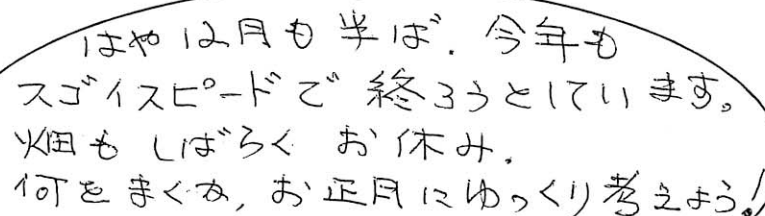 はや12月も半ば. 今年も
スゴイスピードで終ろうとしています。
畑もしばらくお休み.
何をまくか, お正月にゆっくり考えよう!